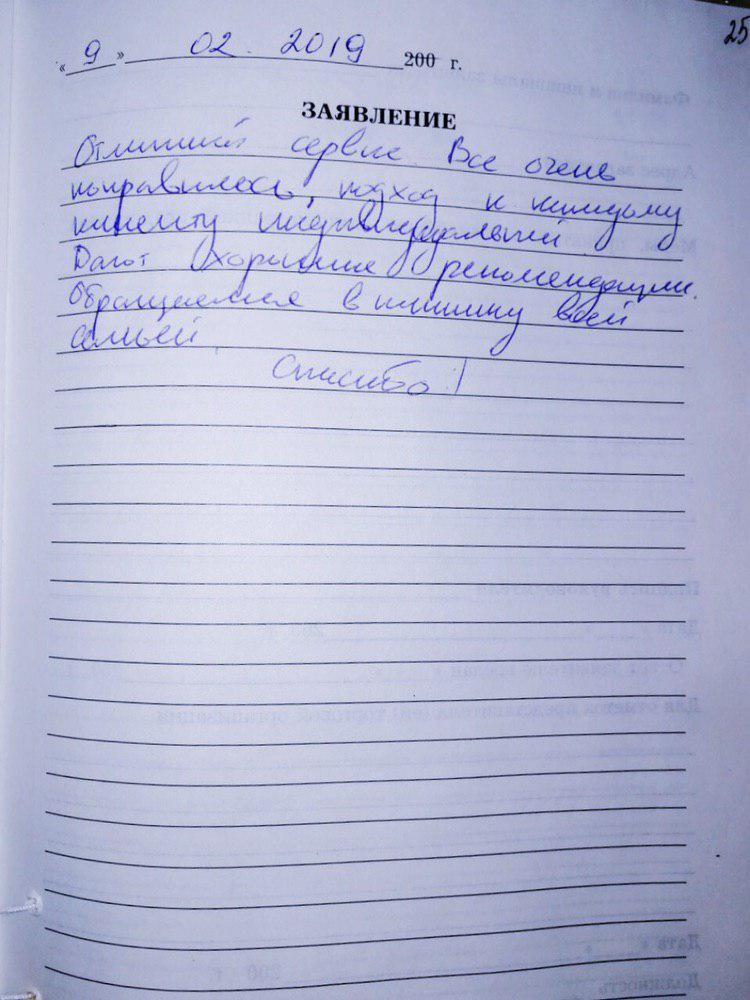 25
« 9 » 02. 2019 200 г.
ЗАЯВЛЕНИЕ
Отличный сервис. Все очень
понравилось, подход к каждому
клиенту индивидуальный.
Дают хорошие рекомендации.
Обращаемся в клинику всей
семьей.
Спасибо!